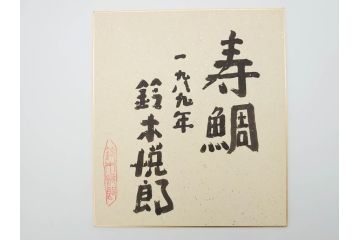 寿鯛
一九八九年
鈴木悦郎